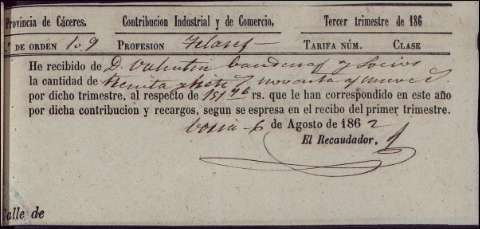 Provincia de Cáceres. Contribucion Industrial y de Comercio. Tercer trimestre de 186
DE ORDEN 109 PROFESION TARIFA NÚM. CLASE
He recibido de D. Valentin y Socios
la cantidad de treinta y siete noventa y nueve c
por dicho trimestre, al respecto de 151,96 rs. que le han correspondido en este año
por dicha contribucion y recargos, segun se espresa en el recibo del primer trimestre.
Coria 6 de Agosto de 1862
El Recaudador,
Calle de